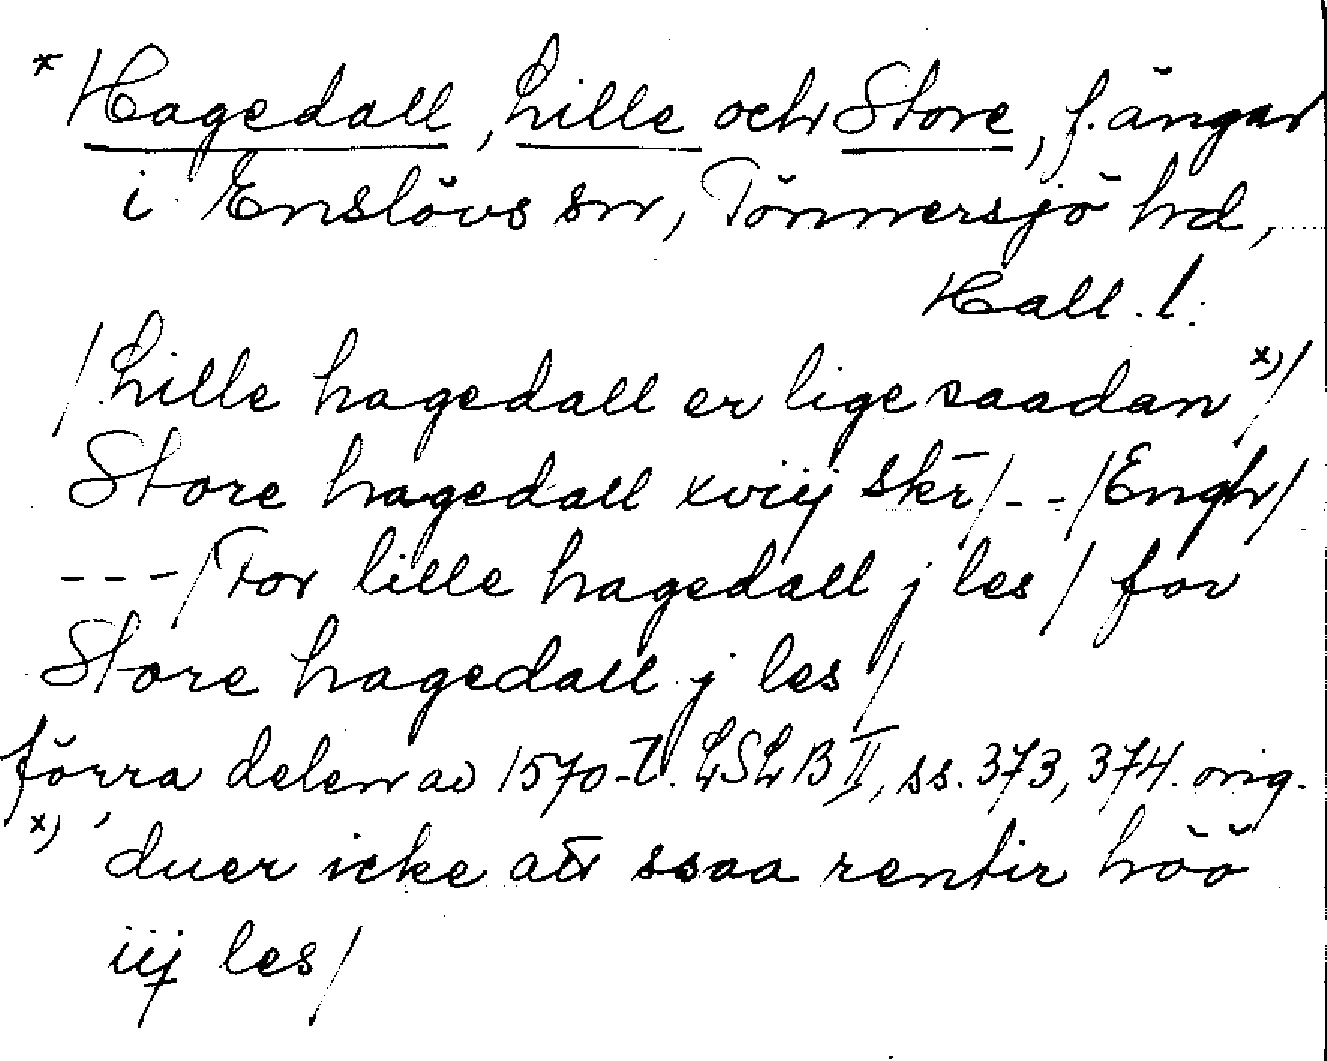 * Hagedall, Lille och Store, f. ängar
i Enslövs sn, Tönnersjö hd,
Hall. l.
/Lille hagedall er lige saadan x)/
Store hagedall xviij skr̄/ - - /Engh/
- - - /For lille hagedall j les / for
Store hagedall j les /
förra delen av 1570-t. LSLB II, ss. 373, 374. orig.
x) duer icke att ssaa rentir höö
iij les/